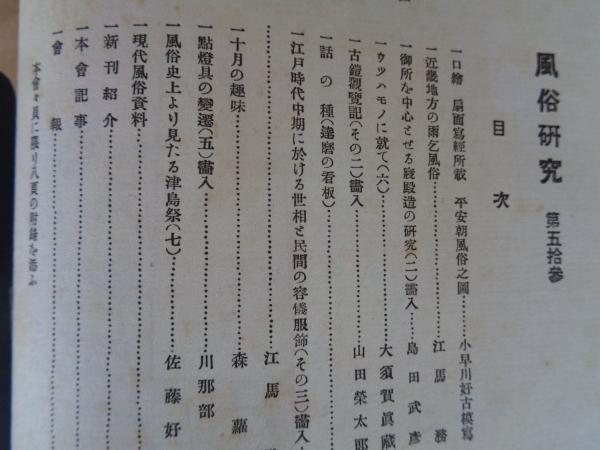 風俗研究 第五拾參
目次
一口繪 扇面寫經所載 平安朝風俗之圖………小早川好古模寫
一近畿地方の雨乞風俗………江馬務
一御所を中心とせる寢殿造の研究(二)圖入………島田武彦
一ウツハモノに就て(六)………大須賀眞藏
一古鎧觀覽記(その二)圖入………山田榮太郎
一話の種(達磨の看板)
一江戸時代中期に於ける世相と民間の容儀服飾(その三)圖入
………江馬
一十月の趣味………森嘉
一點燈具の變遷(五)圖入………川那部
一風俗史上より見たる津島祭(七)………佐藤好
一現代風俗資料………
一新刊紹介………
一本會記事………
一會報………
本會々員に限り八頁の附錄を添ふ